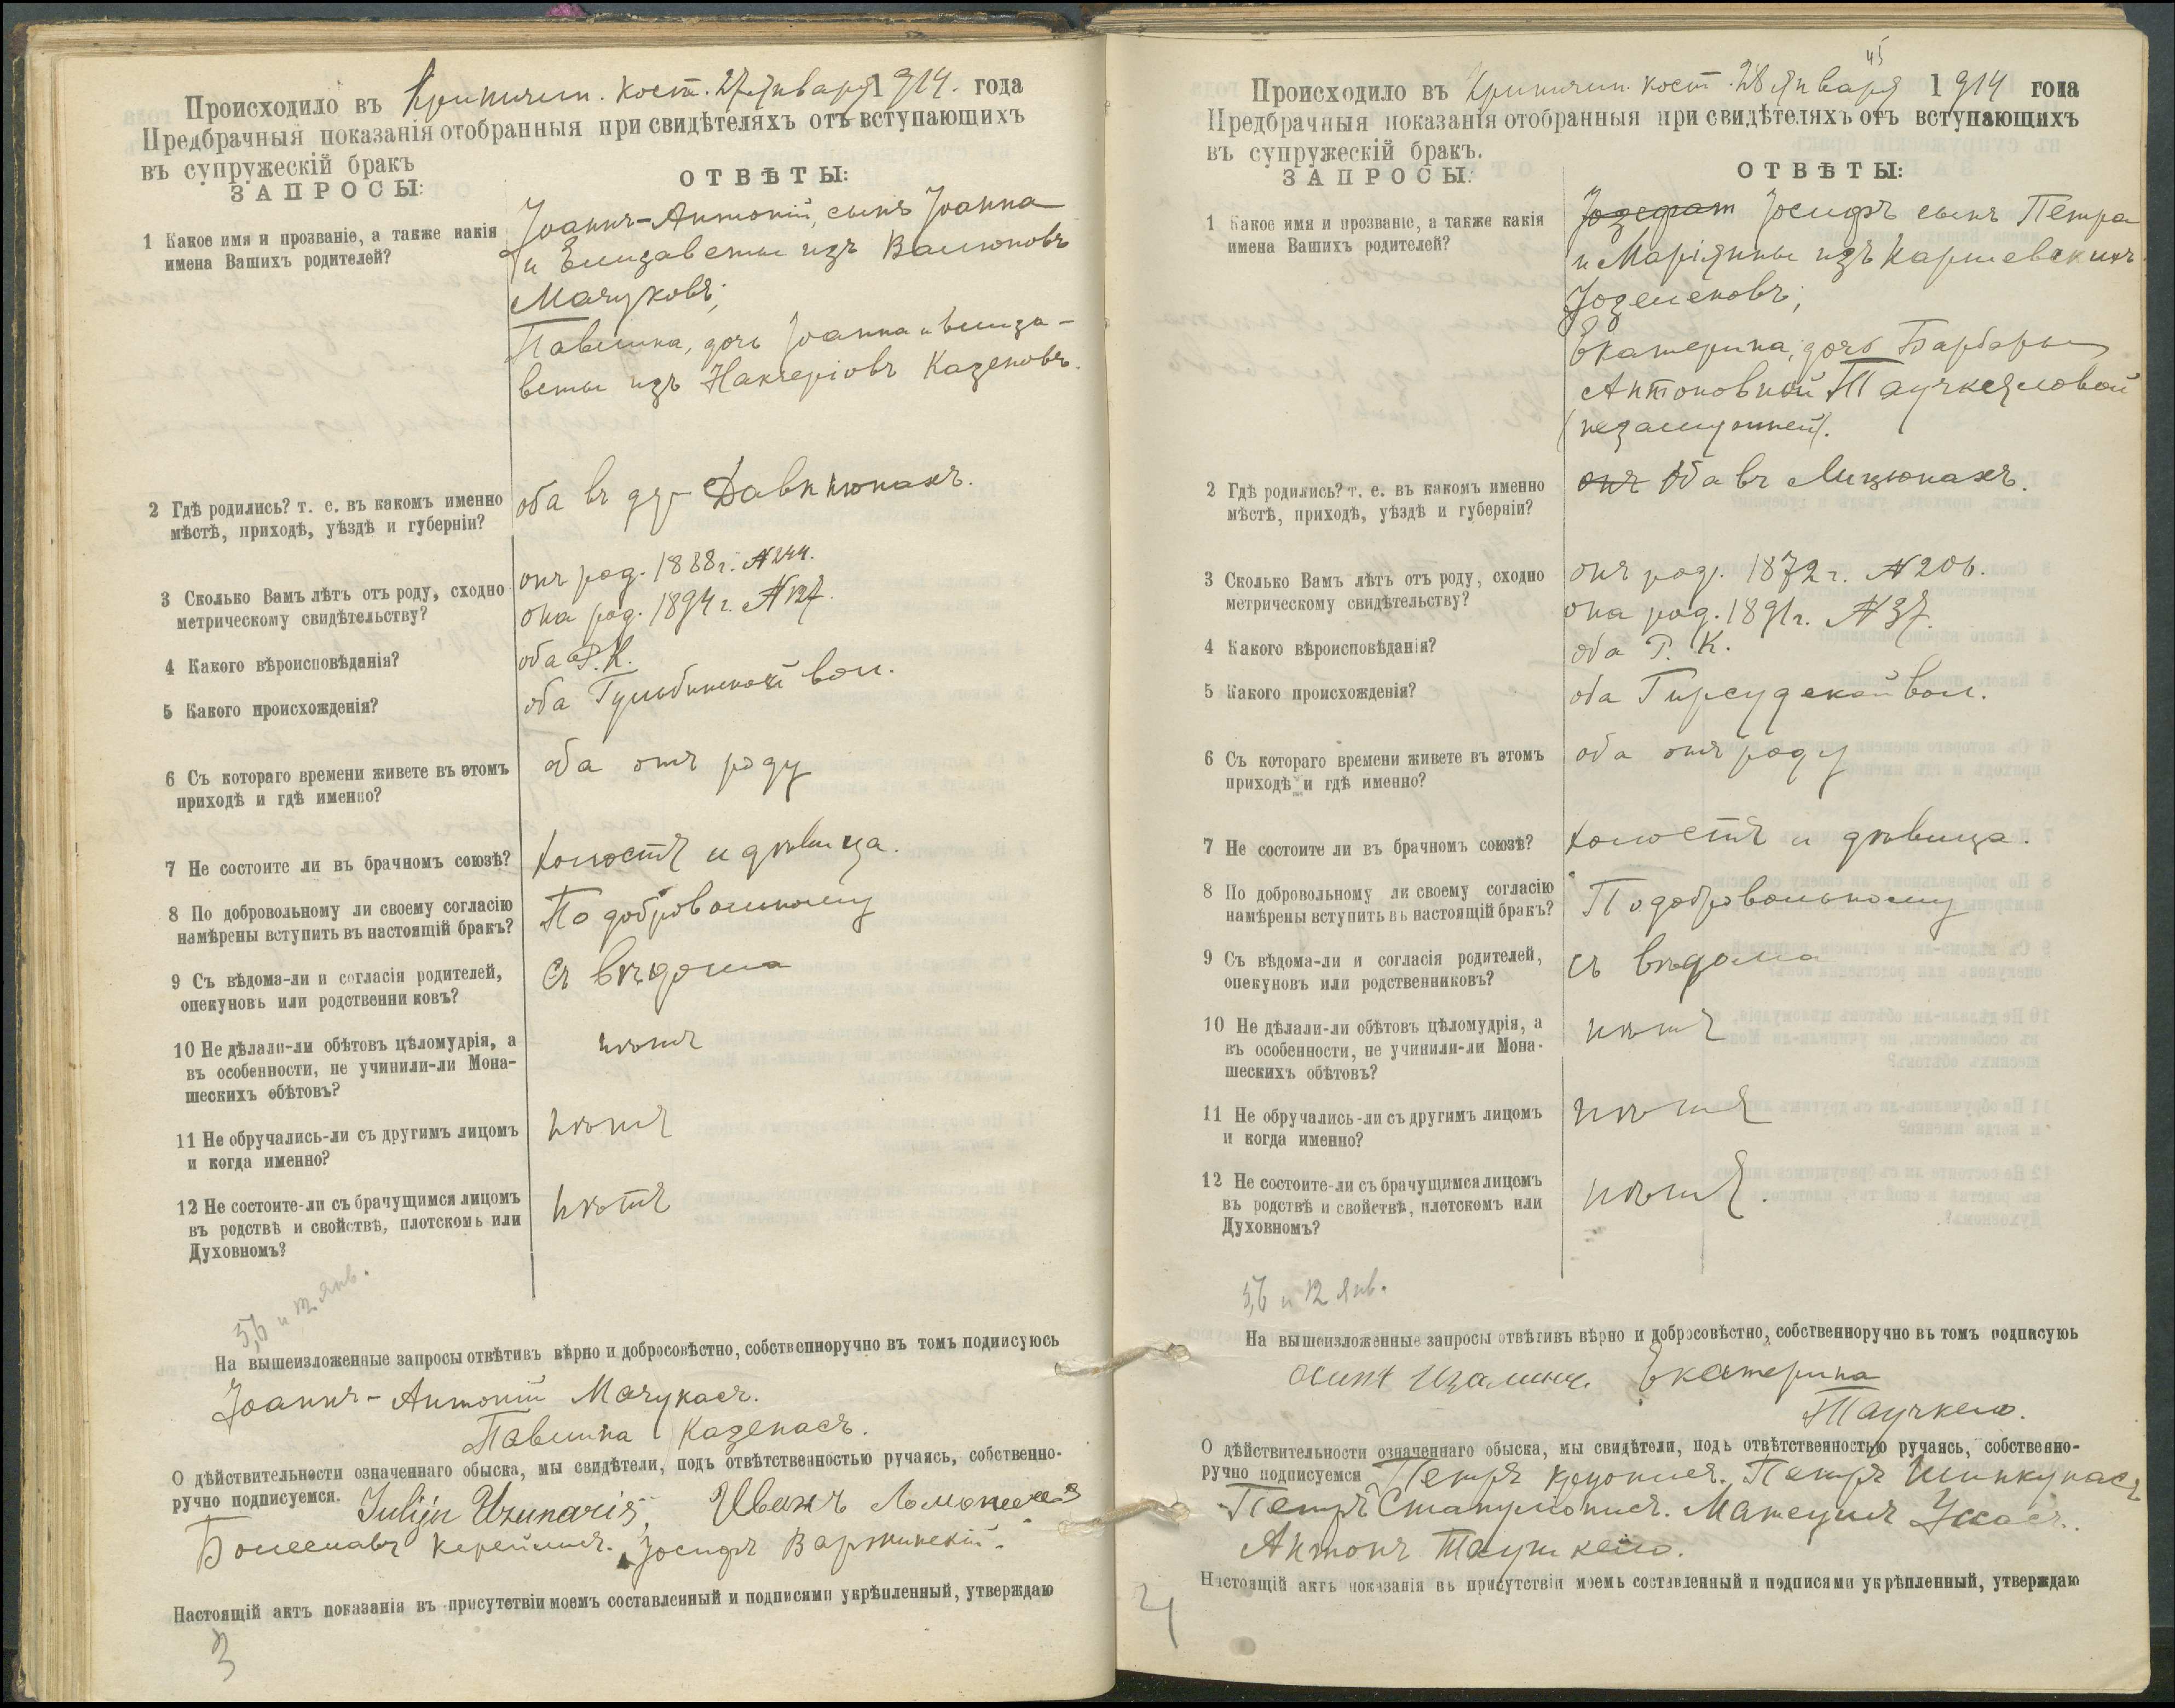 Происходило въ Крипичин. кост. 27 Января 1914. года
Предбрачныя показанія отобранныя при свидѣтеляхъ отъ вступающихъ
въ супружескій бракъ
ЗАПРОСЫ:
ОТВѢТЫ:
1 Какое имя и прозваніе, а также какія
имена Вашихъ родителей?
Іоаннъ-Антоній, сынъ Іоанна
и Елизаветы изъ Валюновъ
Мачуковъ;
Павлина, дочь Іоанна и Елиза-
веты изъ Накчеріовъ Казеновъ.
2 Гдѣ родились? т. е. въ какомъ именно
мѣстѣ, приходѣ, уѣздѣ и губерніи?
оба въ дер
3 Сколько Вамъ лѣтъ отъ роду, сходно
метрическому свидѣтельству?
онъ род. 1888 г. № 244.
она род. 1894 г. № 127.
4 Какого вѣроисповѣданія?
оба Р. К.
5 Какого происхожденія?
оба Гульбинской вол.
6 Съ котораго времени живете въ этомъ
приходѣ и гдѣ именно?
оба отъ роду
7 Не состоите ли въ брачномъ союзѣ?
холостъ и дѣвица.
8 По добровольному ли своему согласію
намѣрены вступить въ настоящій бракъ?
По добровольному
9 Съ вѣдома-ли и согласія родителей,
опекуновъ или родственни ковъ?
съ вѣдома
10 Не дѣлали-ли обѣтовъ цѣломудрія, а
въ особенности, не учинили-ли Мона-
шескихъ обѣтовъ?
нѣтъ
11 Не обручались-ли съ другимъ лицомъ
и когда именно?
нѣтъ
12 Не состоите-ли съ брачущимся лицомъ
въ родствѣ и свойствѣ, плотскомъ или
Духовномъ?
нѣтъ
5, 6 и 12 Янв.
На вышеизложенные запросы отвѣтивъ вѣрно и добросовѣстно, собственноручно въ томъ подписуюсь
Іоаннъ-Антоній Мачукасъ.
Павлина Казенасъ.
О дѣйствительности означеннаго обыска, мы свидѣтели, подъ отвѣтственностью ручаясь, собственно-
ручно подписуемся.
Julijn Uzunaris, Иванъ
Болеславъ Керейшисъ. Іосифъ Варжинскій.
Настоящій актъ показанія въ присутствіи моемъ составленный и подписями укрѣпленный, утверждаю
3
45
Происходило въ Крипичин. кост. 28 Января 1914 года
Предбрачныя показанія отобранныя при свидѣтеляхъ отъ вступающихъ
въ супружескій бракъ.
ЗАПРОСЫ:
ОТВѢТЫ:
1 Какое имя и прозваніе, а также какія
имена Вашихъ родителей?
Іозефат Іосифъ сынъ Петра
и Маріянны изъ Каршевскихъ
Іозеленовъ;
Екатерина, дочь Барбары
Антоновной Таучкеловой
(незамужней).
2 Гдѣ родились? т. е. въ какомъ именно
мѣстѣ, приходѣ, уѣздѣ и губерніи?
онъ Оба въ Лицюнахъ.
3 Сколько Вамъ лѣтъ отъ роду, сходно
метрическому свидѣтельству?
онъ род. 1872 г. № 206.
она род. 1891 г. № 37.
4 Какого вѣроисповѣданія?
оба Р. К.
5 Какого происхожденія?
оба Гирсудской вол.
6 Съ котораго времени живете въ этомъ
приходѣ и гдѣ именно?
оба отъ роду
7 Не состоите ли въ брачномъ союзѣ?
холостъ и дѣвица.
8 По добровольному ли своему согласію
намѣрены вступить въ настоящій бракъ?
По добровольному
9 Съ вѣдома-ли и согласія родителей,
опекуновъ или родственниковъ?
съ вѣдома
10 Не дѣлали-ли обѣтовъ цѣломудрія, а
въ особенности, не учинили-ли Мона-
шескихъ обѣтовъ?
нѣтъ
11 Не обручались-ли съ другимъ лицомъ
и когда именно?
нѣтъ
12 Не состоите-ли съ брачущимся лицомъ
въ родствѣ и свойствѣ, плотскомъ или
Духовномъ?
нѣтъ.
5, 6 и 12 Янв.
На вышеизложенные запросы отвѣтивъ вѣрно и добросовѣстно, собственноручно въ томъ подписуюь
Екатерина
Таучкело.
О дѣйствительности означеннаго обыска, мы свидѣтели, подъ отвѣтственностью ручаясь, собственно-
ручно подписуемся Петръ Петръ Шинкунасъ
Петръ Станулонисъ. Матеушъ
Антонъ Таучкело.
Настоящій актъ показанія въ присутствіи моемъ составленный и подписями укрѣпленный, утверждаю
4